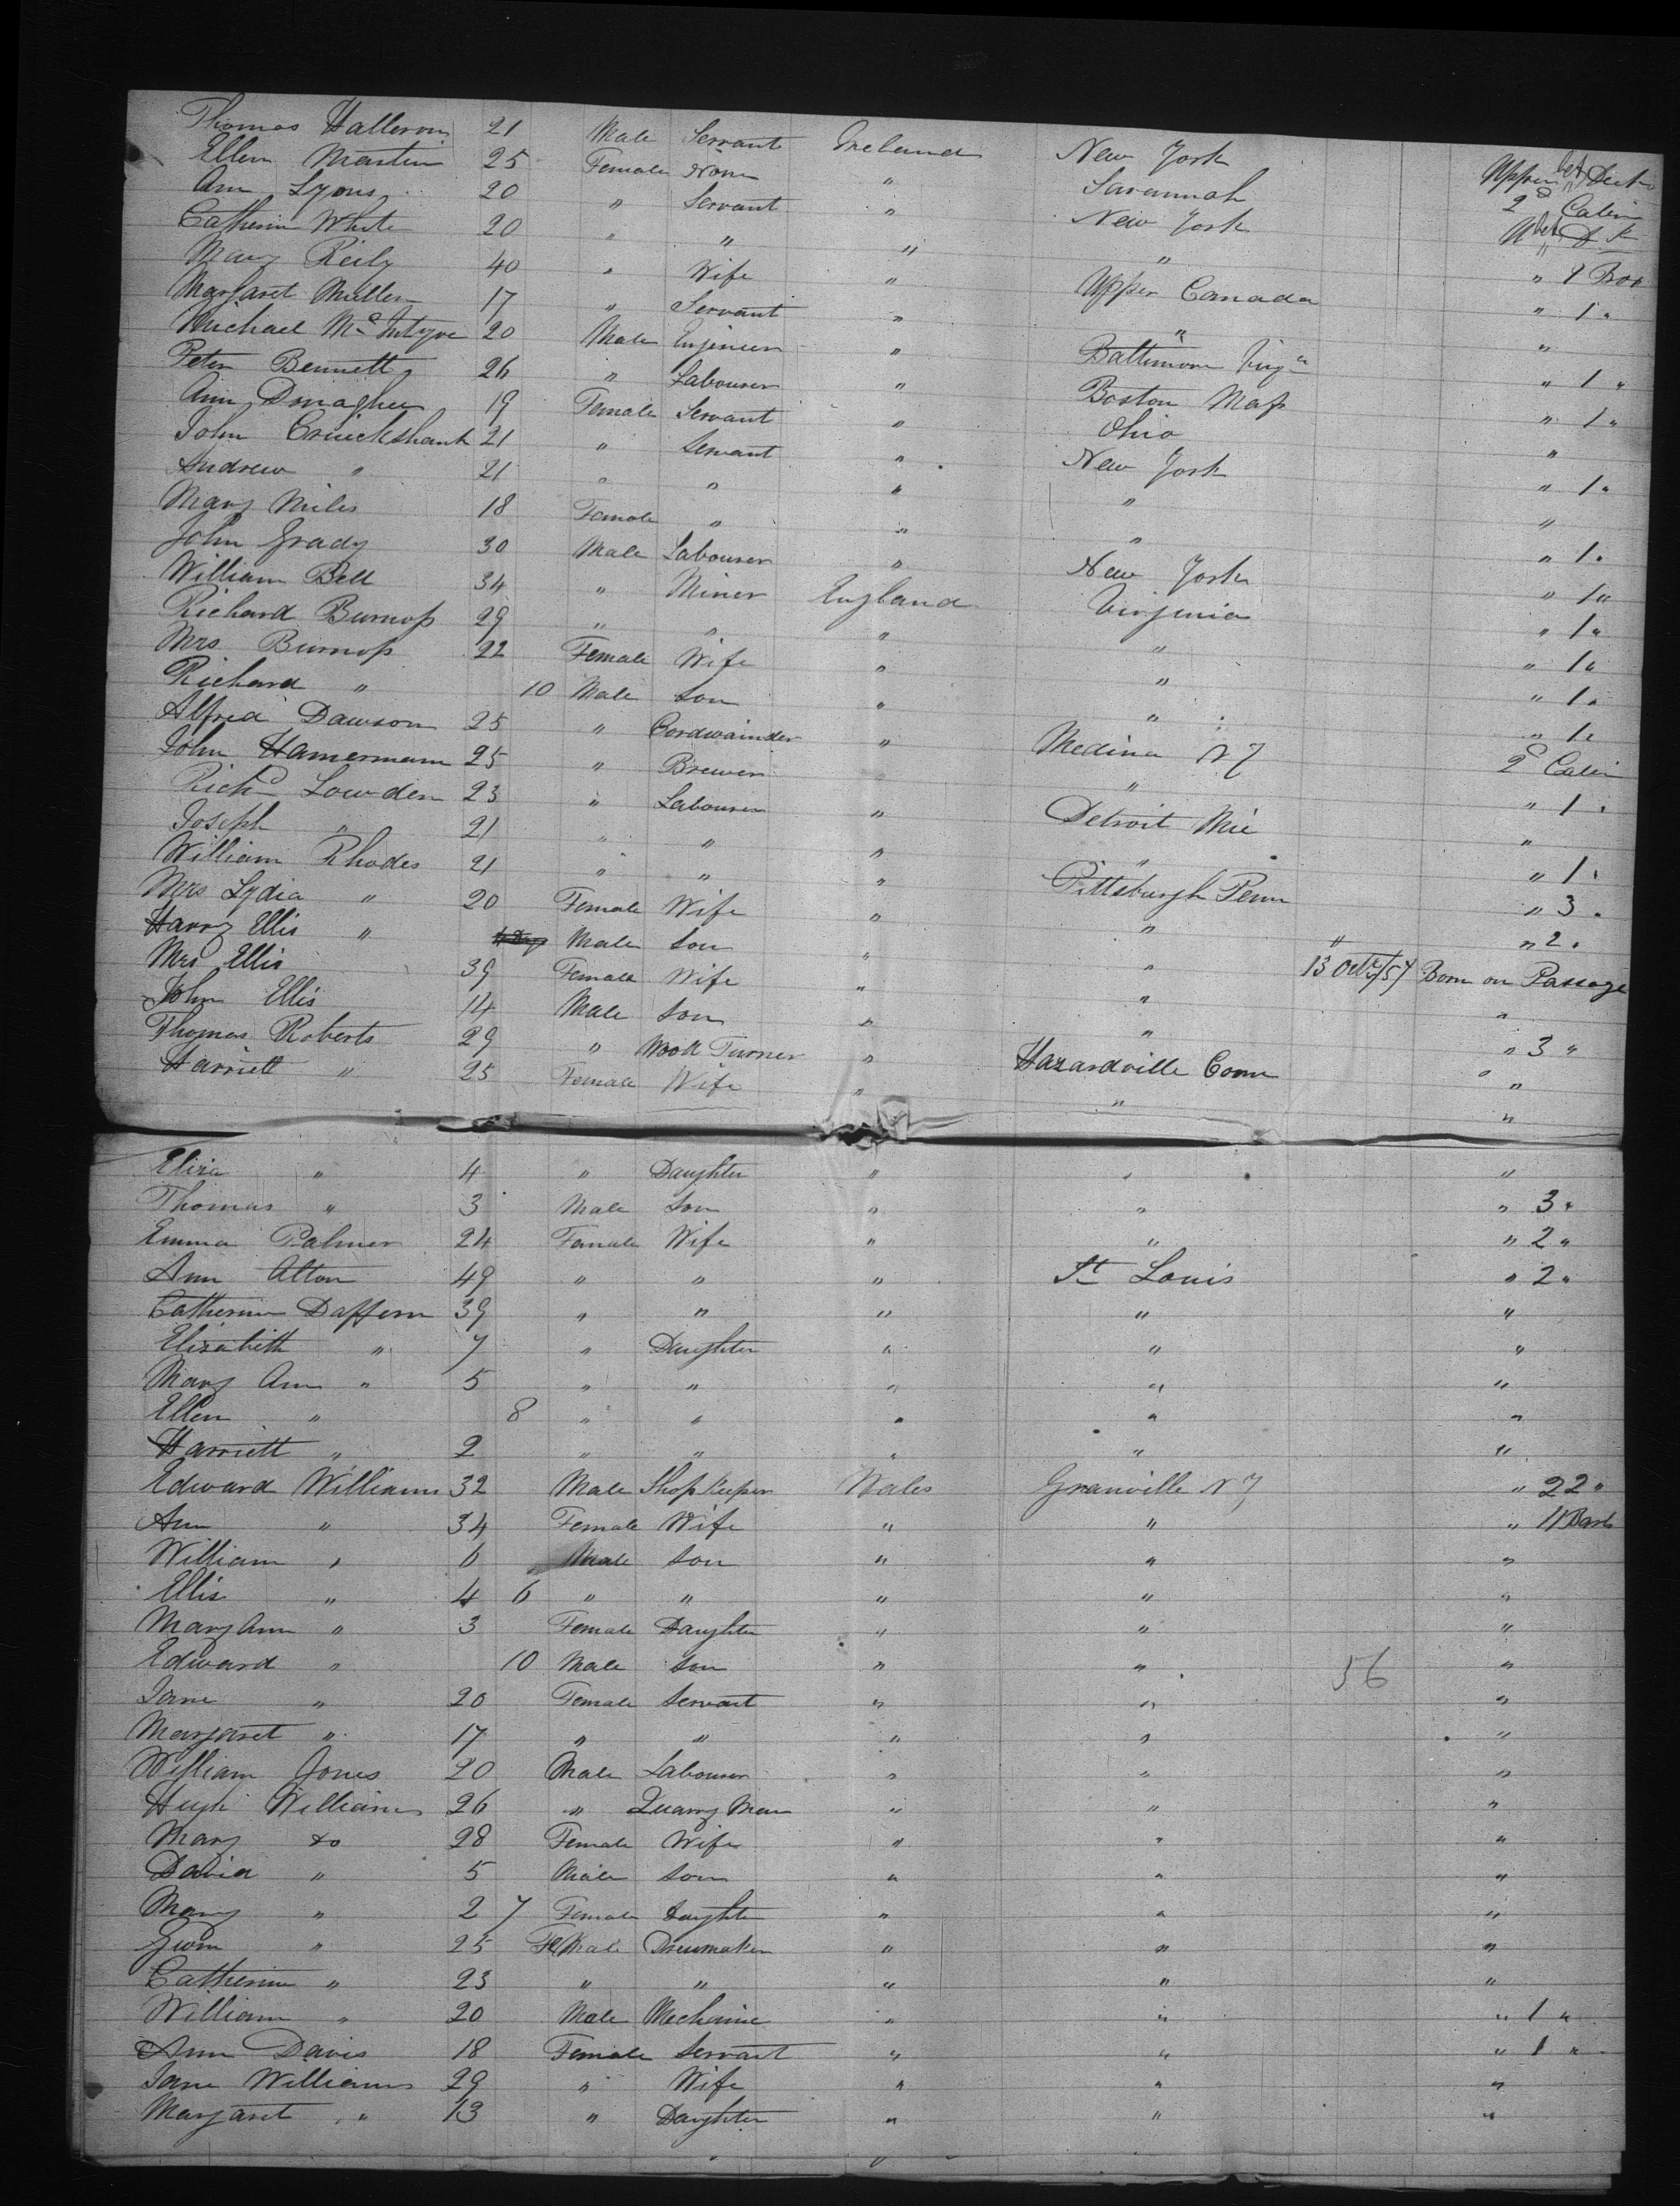 Thomas Halleron 21 Male Servant Ireland New York Upper bet Decks
Ellen Martin 25 Female None " Savannah 2d Cabin
Ann Lyons 20 " Servant " New York U bet D k
Catherine White 20 " " " " " 1 Box
Mary Reily 40 " Wife " Upper Canada " 1 "
Margaret Mullen 17 " Servant " " "
Michael McIntyre 20 Male Engineer " Baltimore Virga " 1 "
Peter Bennett 26 " Labourer " Boston Mass " 1 "
Ann Donaghue 19 Female Servant " Ohio "
John Cruickshank 21 " Servant " New York " 1 "
Andrew " 21 " " " " "
Mary Miles 18 Female " " " " 1 "
John Grady 30 Male Labourer " New York " 1 "
William Bell 34 " Miner England Virginia " 1 "
Richard Burnop 29 " " " " " 1 "
Mrs Burnop 22 Female Wife " " " 1 "
Richard " 10 Male Son " " " 1 "
Alfred Dawson 25 " Cordwainder " Medina N Y 2d Cabin
John Hamermam 25 " Brewer " " 1 "
Richd Lowden 23 " Labourer " Detroit Mic "
Joseph " 21 " " " " " 1 "
William Rhodes 21 " " " Pittsburgh Penn " 3 "
Mrs Lydia " 20 Female Wife " " " 2 "
Harry Ellis " Male Son " " 13 Octr/57 Born on Passage
Mrs Ellis 39 Female Wife " " "
John Ellis 14 Male Son " " " 3 "
Thomas Roberts 29 " Wood Turner " Hazardville Conn "
Harriett " 25 Female Wife " " "
Eliza " 4 " Daughter " " "
Thomas " 3 Male Son " " " 3 "
Emma Palmer 24 Female Wife " " " 2 "
Ann Alton 49 " " " St Louis " 2 "
Catherine Daffern 39 " " " " "
Elizabeth " 7 " Daughter " " "
Mary Ann " 5 " " " " "
Ellen " 8 " " " " "
Harriett " 2 " " " " "
Edward Williams 32 Male Shop Keeper Wales Granville N Y " 22 "
Ann " 34 Female Wife " " " 11 Bask
William " 6 Male Son " " "
Ellis " 4 6 " " " " "
Mary Ann " 3 Female Daughter " " "
Edward " 10 Male Son " " 56 "
Jane " 20 Female Servant " " "
Margaret " 17 " " " " "
William Jones 20 Male Labourer " " "
Hugh Williams 26 " Quarry Man " " "
Mary do 28 Female Wife " " "
David " 5 Male Son " " "
Mary " 2 7 Female Daughter " " "
Gwen " 25 FeMale Dressmaker " " "
Catherine " 23 " " " " "
William " 20 Male Mechanic " " " 1 "
Ann Davis 18 Female Servant " " " 1 "
Jane Williams 29 " Wife " " "
Margaret " 13 " Daughter " " "